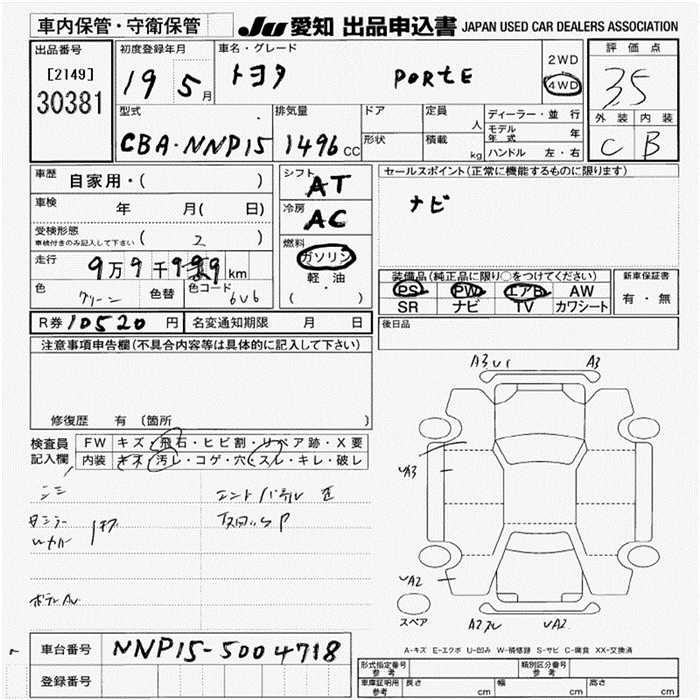 車内保管・守衛保管
JU 愛知 出品申込書 JAPAN USED CAR DEALERS ASSOCIATION
出品番号
[2149]
30381
初度登録年月
19 5月
車名・グレード
トヨタ PORTE
2WD
4WD
評価点
3.5
外装 内装
C B
型式
CBA・NNP15
排気量
1496 CC
ドア
形状
定員 人
積載 kg
ディーラー・並行
モデル年式 年
ハンドル 左・右
車歴 自家用・( )
車検 年 月( 日)
受検形態
車検付きのみ記入して下さい ( 2 )
走行 9万9千999km
色 グリーン 色替 色コード 6V6
シフト AT
冷房 AC
燃料
ガソリン
軽・油
( ・ )
セールスポイント(正常に機能するものに限ります)
ナビ
装備品(純正品に限り○をつけてください)
PS PW エアB AW
SR ナビ TV カワシート
新車保証書
有・無
R券 10520 円 名変通知期限 月 日
後日品
注意事項申告欄(不具合内容等は具体的に記入して下さい)
修復歴 有 〔箇所 〕
検査員記入欄
FW キズ・飛石・ヒビ割・リペア跡・X要
内装 キズ・汚レ・コゲ・穴・スレ・キレ・破レ
A3 U1 A3
A3
A2
スペア
A2 A2
A-キズ E-エクボ U-凹み W-補修跡 S-サビ C-腐食 XX-交換済
車台番号 NNP15-5004718
登録番号
形式指定番号 参考 類別区分番号 参考
車庫証明用 参考 長さ cm 幅 cm 高さ cm